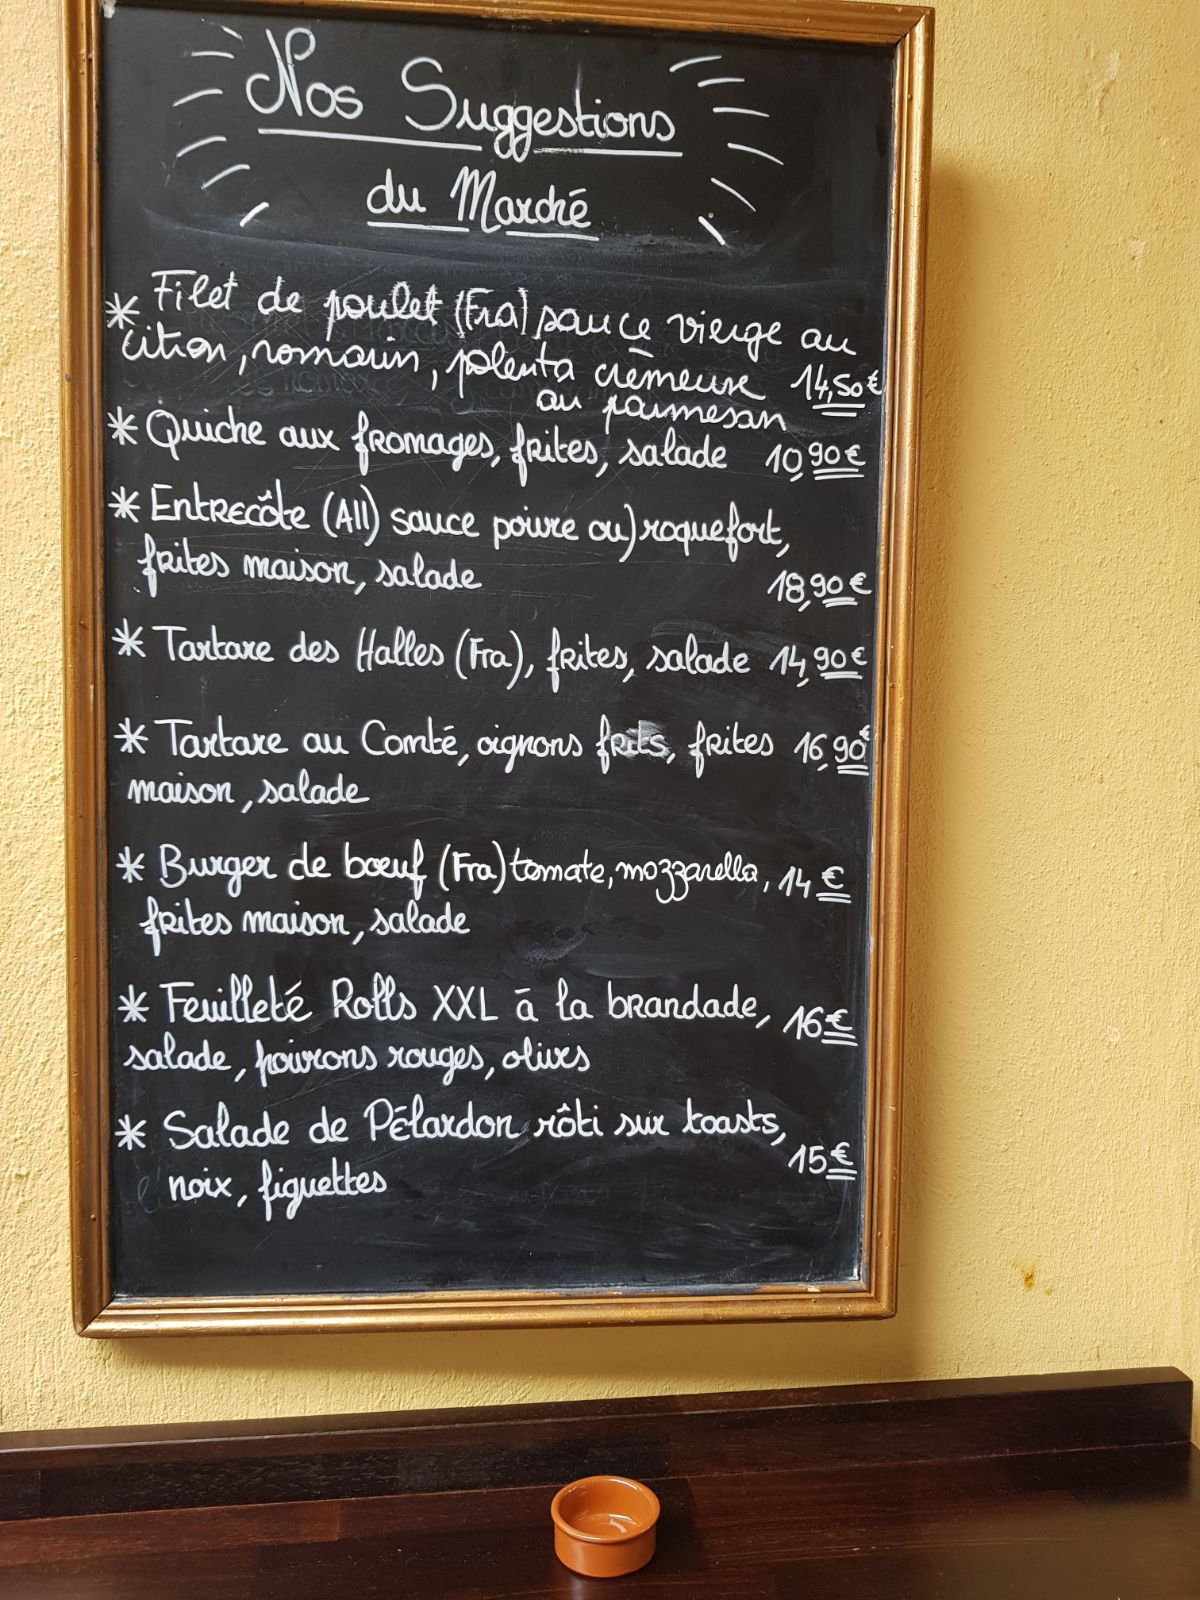 Nos Suggestions
du Marché
* Filet de poulet (Fra) sauce vierge au
citron, romarin, polenta crémeuse 14,50€
au parmesan
* Quiche aux fromages, frites, salade 10,90€
* Entrecôte (All) sauce poivre ou) roquefort,
frites maison, salade 18,90€
* Tartare des Halles (Fra), frites, salade 14,90€
* Tartare au Comté, oignons frits, frites 16,90€
maison, salade
* Burger de bœuf (Fra) tomate, mozzarella, 14€
frites maison, salade
* Feuilleté Rolls XXL à la brandade, 16€
salade, poivrons rouges, olives
* Salade de Pélardon rôti sur toasts,
noix, figuettes 15€